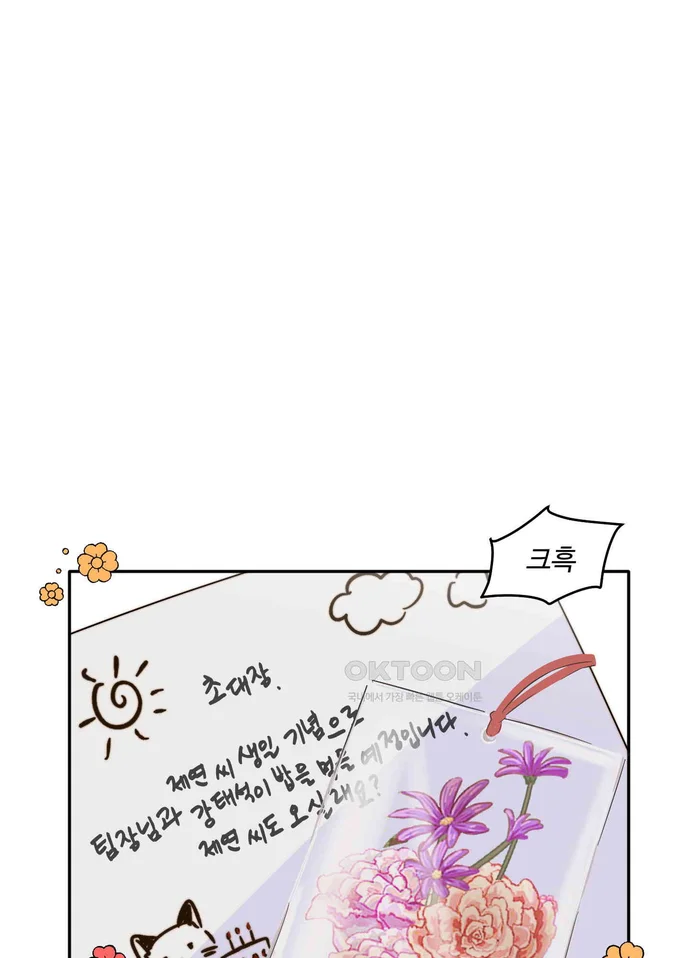 크흑
OKTOON
국내에서 가장 빠른 웹툰 오케이툰
초대장.
제연 씨 생일 기념으로
팀장님과 강태석이 밥을 먹을 예정입니다.
제연 씨도 오실래요?